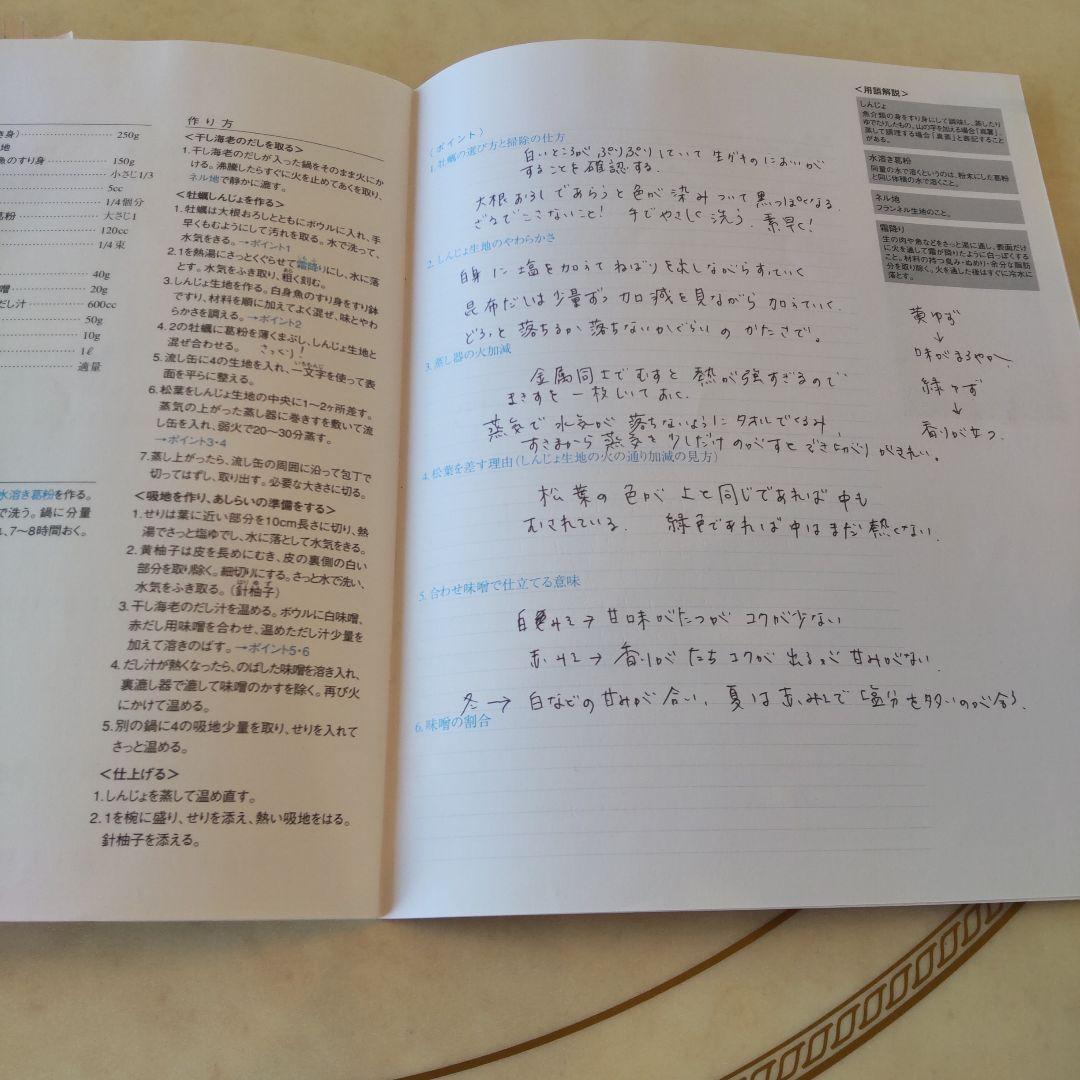 き身) 250g
地
魚のすり身 150g
小さじ1/3
5cc
1/4個分
葛粉 大さじ1
120cc
1/4束
40g
噌 20g
だし汁 600cc
50g
10g
1ℓ
適量
水溶き葛粉を作る。
で洗う。鍋に分量
れ、7〜8時間おく。
作り方
<干し海老のだしを取る>
1.干し海老のだしが入った鍋をそのまま火にか
ける。沸騰したらすぐに火を止めてあくを取り、
ネル地で静かに漉す。
<牡蠣しんじょを作る>
1.牡蠣は大根おろしとともにボウルに入れ、手
早くもむようにして汚れを取る。水で洗って、
水気をきる。→ポイント1
2.1を熱湯にさっとくぐらせて霜降りにし、水に落
とす。水気をふき取り、粗く刻む。
3.しんじょ生地を作る。白身魚のすり身をすり鉢
ですり、材料を順に加えてよく混ぜ、味とやわ
らかさを調える。→ポイント2
4.2の牡蠣に葛粉を薄くまぶし、しんじょ生地と
混ぜ合わせる。 さっくり!
5.流し缶に4の生地を入れ、一文字を使って表
面を平らに整える。
6.松葉をしんじょ生地の中央に1〜2ヶ所差す。
蒸気の上がった蒸し器に巻きすを敷いて流
し缶を入れ、弱火で20〜30分蒸す。
→ポイント3・4
7.蒸し上がったら、流し缶の周囲に沿って包丁で
切ってはずし、取り出す。必要な大きさに切る。
<吸地を作り、あしらいの準備をする>
1.せりは葉に近い部分を10cm長さに切り、熱
湯でさっと塩ゆでし、水に落として水気をきる。
2.黄柚子は皮を長めにむき、皮の裏側の白い
部分を取り除く。細切りにする。さっと水で洗い、
水気をふき取る。(針柚子)
3.干し海老のだし汁を温める。ボウルに白味噌、
赤だし用味噌を合わせ、温めただし汁少量を
加えて溶きのばす。→ポイント5・6
4.だし汁が熱くなったら、のばした味噌を溶き入れ、
裏漉し器で漉して味噌のかすを除く。再び火
にかけて温める。
5.別の鍋に4の吸地少量を取り、せりを入れて
さっと温める。
<仕上げる>
1.しんじょを蒸して温め直す。
2.1を椀に盛り、せりを添え、熱い吸地をはる。
針柚子を添える。
(ポイント)
1.牡蠣の選び方と掃除の仕方
白いところが ぷりぷり していて 生がきのにおいが
することを確認する。
大根おろしであらうと色が染みついて黒っぽくなる。
ざるでこさないこと! 手でやさしく洗う. 素早く!
2.しんじょ生地のやわらかさ
白身に塩を加えて ねばりを出しながらすっていく
昆布だしは少量ずつ加減を見ながら加えていく.
どろっと落ちるか落ちないかぐらいの かたさで。
3.蒸し器の火加減
金属同士でむすと熱が強すぎるので
まきすを一枚しいておく.
蒸気で水気が落ちないようにタオルでくるみ
すきまから蒸気を少しだけのがすとでき上がりがきれい。
4.松葉を差す理由(しんじょ生地の火の通り加減の見方)
松葉の色が上と同じであれば中も
むされている. 緑色であれば中はまだ熱くない.
5.合わせ味噌で仕立てる意味
白みそ→甘味がたつがコクが少ない
赤みそ→香りがたちコクが出るが甘みがない.
冬→白などの甘みが合い, 夏は赤みそで塩分を多いのが合う.
6.味噌の割合
<用語解説>
しんじょ
魚介類の身をすり身にして調味し、蒸したり
ゆでたりしたもの。山の芋を加える場合「真薯」、
蒸して調理する場合「真蒸」と表記すること
がある。
水溶き葛粉
同量の水で溶くというのは、粉末にした葛粉
と同じ体積の水で溶くこと。
ネル地
フランネル生地のこと。
霜降り
生の肉や魚などをさっと湯に通し、表面だけ
に火を通して霜が降りたように白っぽくする
こと。材料の持つ臭み・ぬめり・余分な脂肪
分を取り除く。火を通した後はすぐに冷水に
落とす。
黄ゆず
↓
味がまろやか
緑ゆず
↓
香りが立つ.